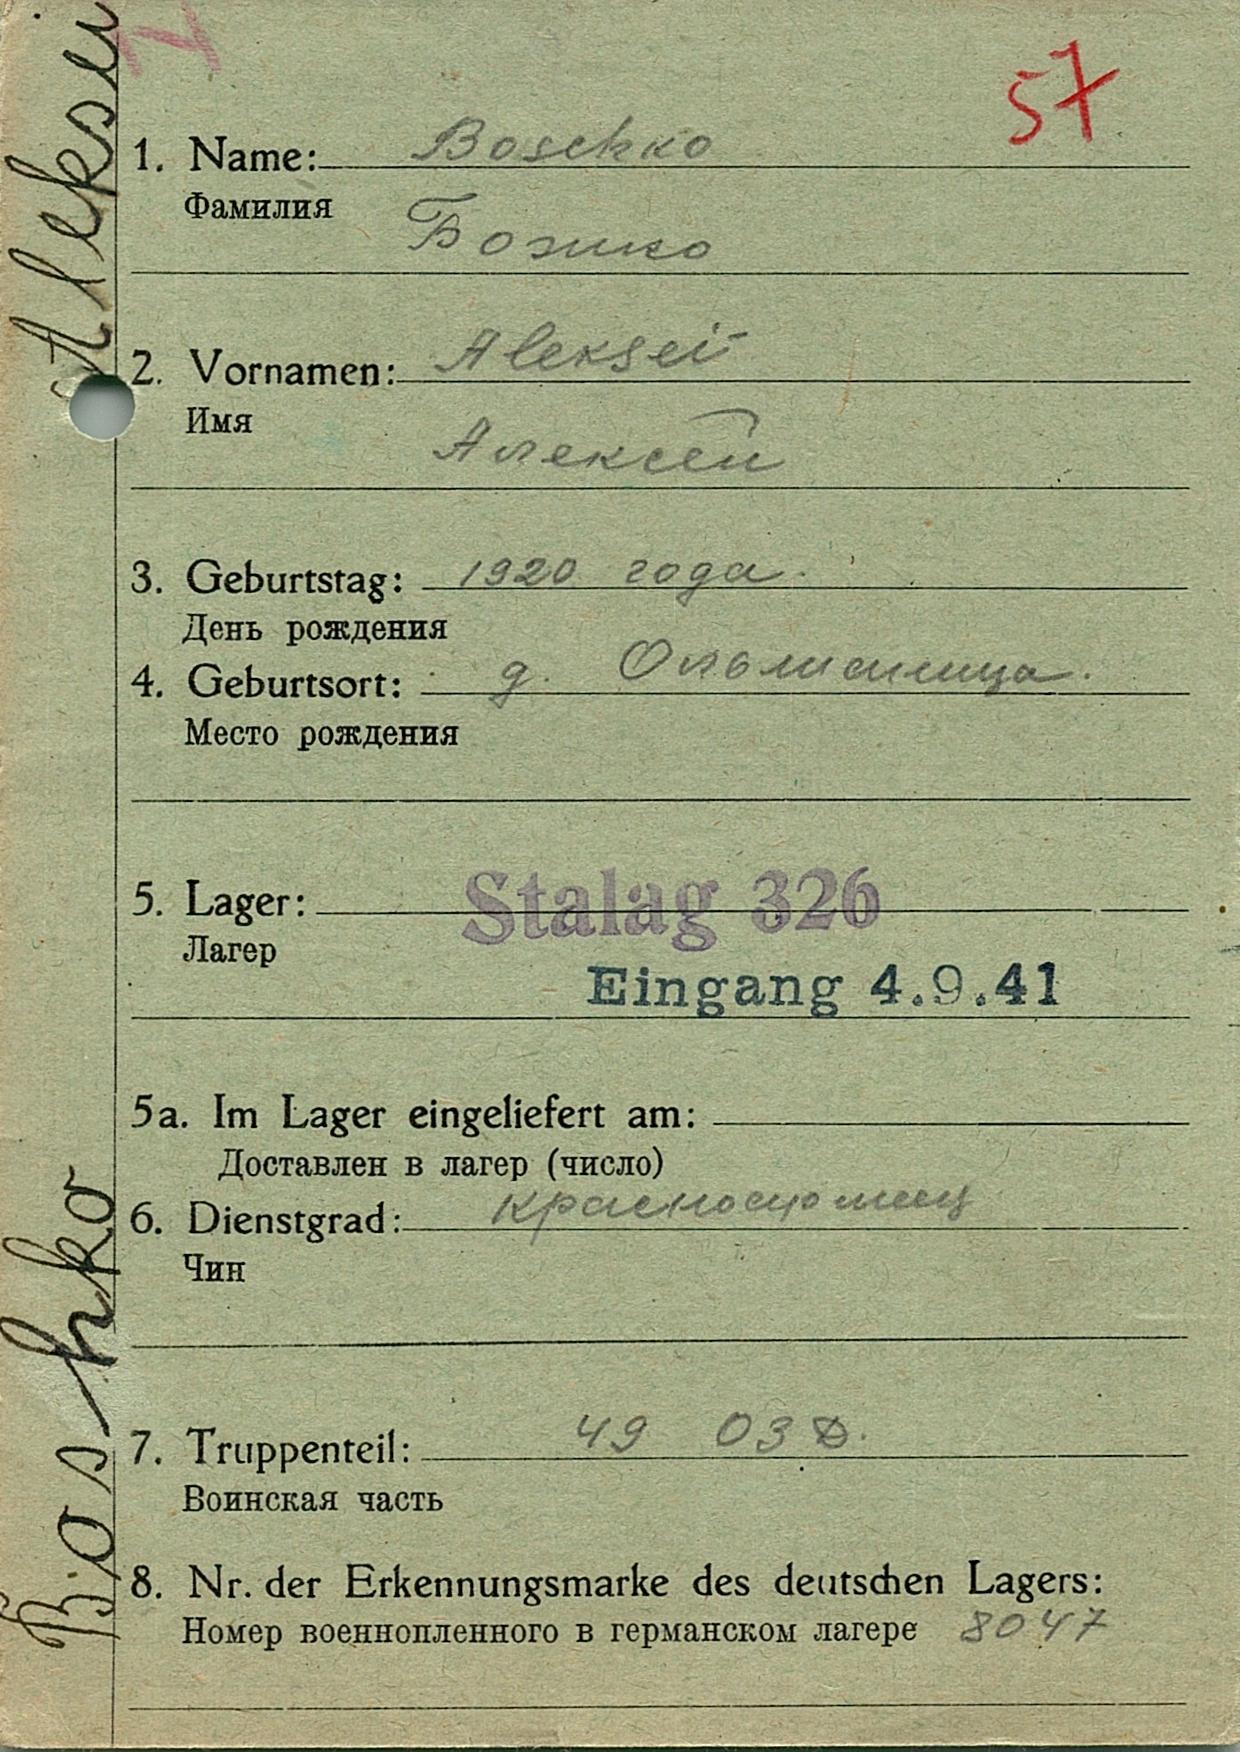 57
1. Name: Boschko
Фамилия
Божко
2. Vornamen: Aleksei
Имя
Алексей
3. Geburtstag: 1920 года.
День рождения
4. Geburtsort: д.
Место рождения
5. Lager: Stalag 326
Лагер
Eingang 4.9.41
5a. Im Lager eingeliefert am:
Доставлен в лагер (число)
6. Dienstgrad: красноармеец
Чин
7. Truppenteil: 49 ОЗД.
Воинская часть
8. Nr. der Erkennungsmarke des deutschen Lagers:
Номер военнопленного в германском лагере 8047
Boshko Aleksei